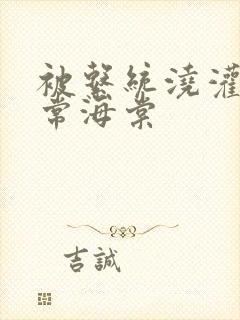 被繫統澆灌
常海棠
吉誠